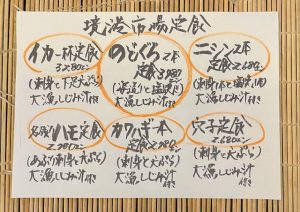 境港市場定食
イカ一杯定食
3,280エン
(刺身と下足天ぷら)
大漁しじみ汁付き
のどぐろ2本
定食3,980エン
(姿造りと塩焼き)
大漁しじみ汁付き
ニシン2本
定食2,680エン
大漁しじみ汁付き
名残ハモ定食
2,980エン
(あぶり刺身と天ぷら)
大漁しじみ汁付き
カワハギ一本
(刺身と天ぷら)
大漁しじみ汁付き
穴子定食
2,680エン
(刺身と天ぷら)
大漁しじみ汁付き